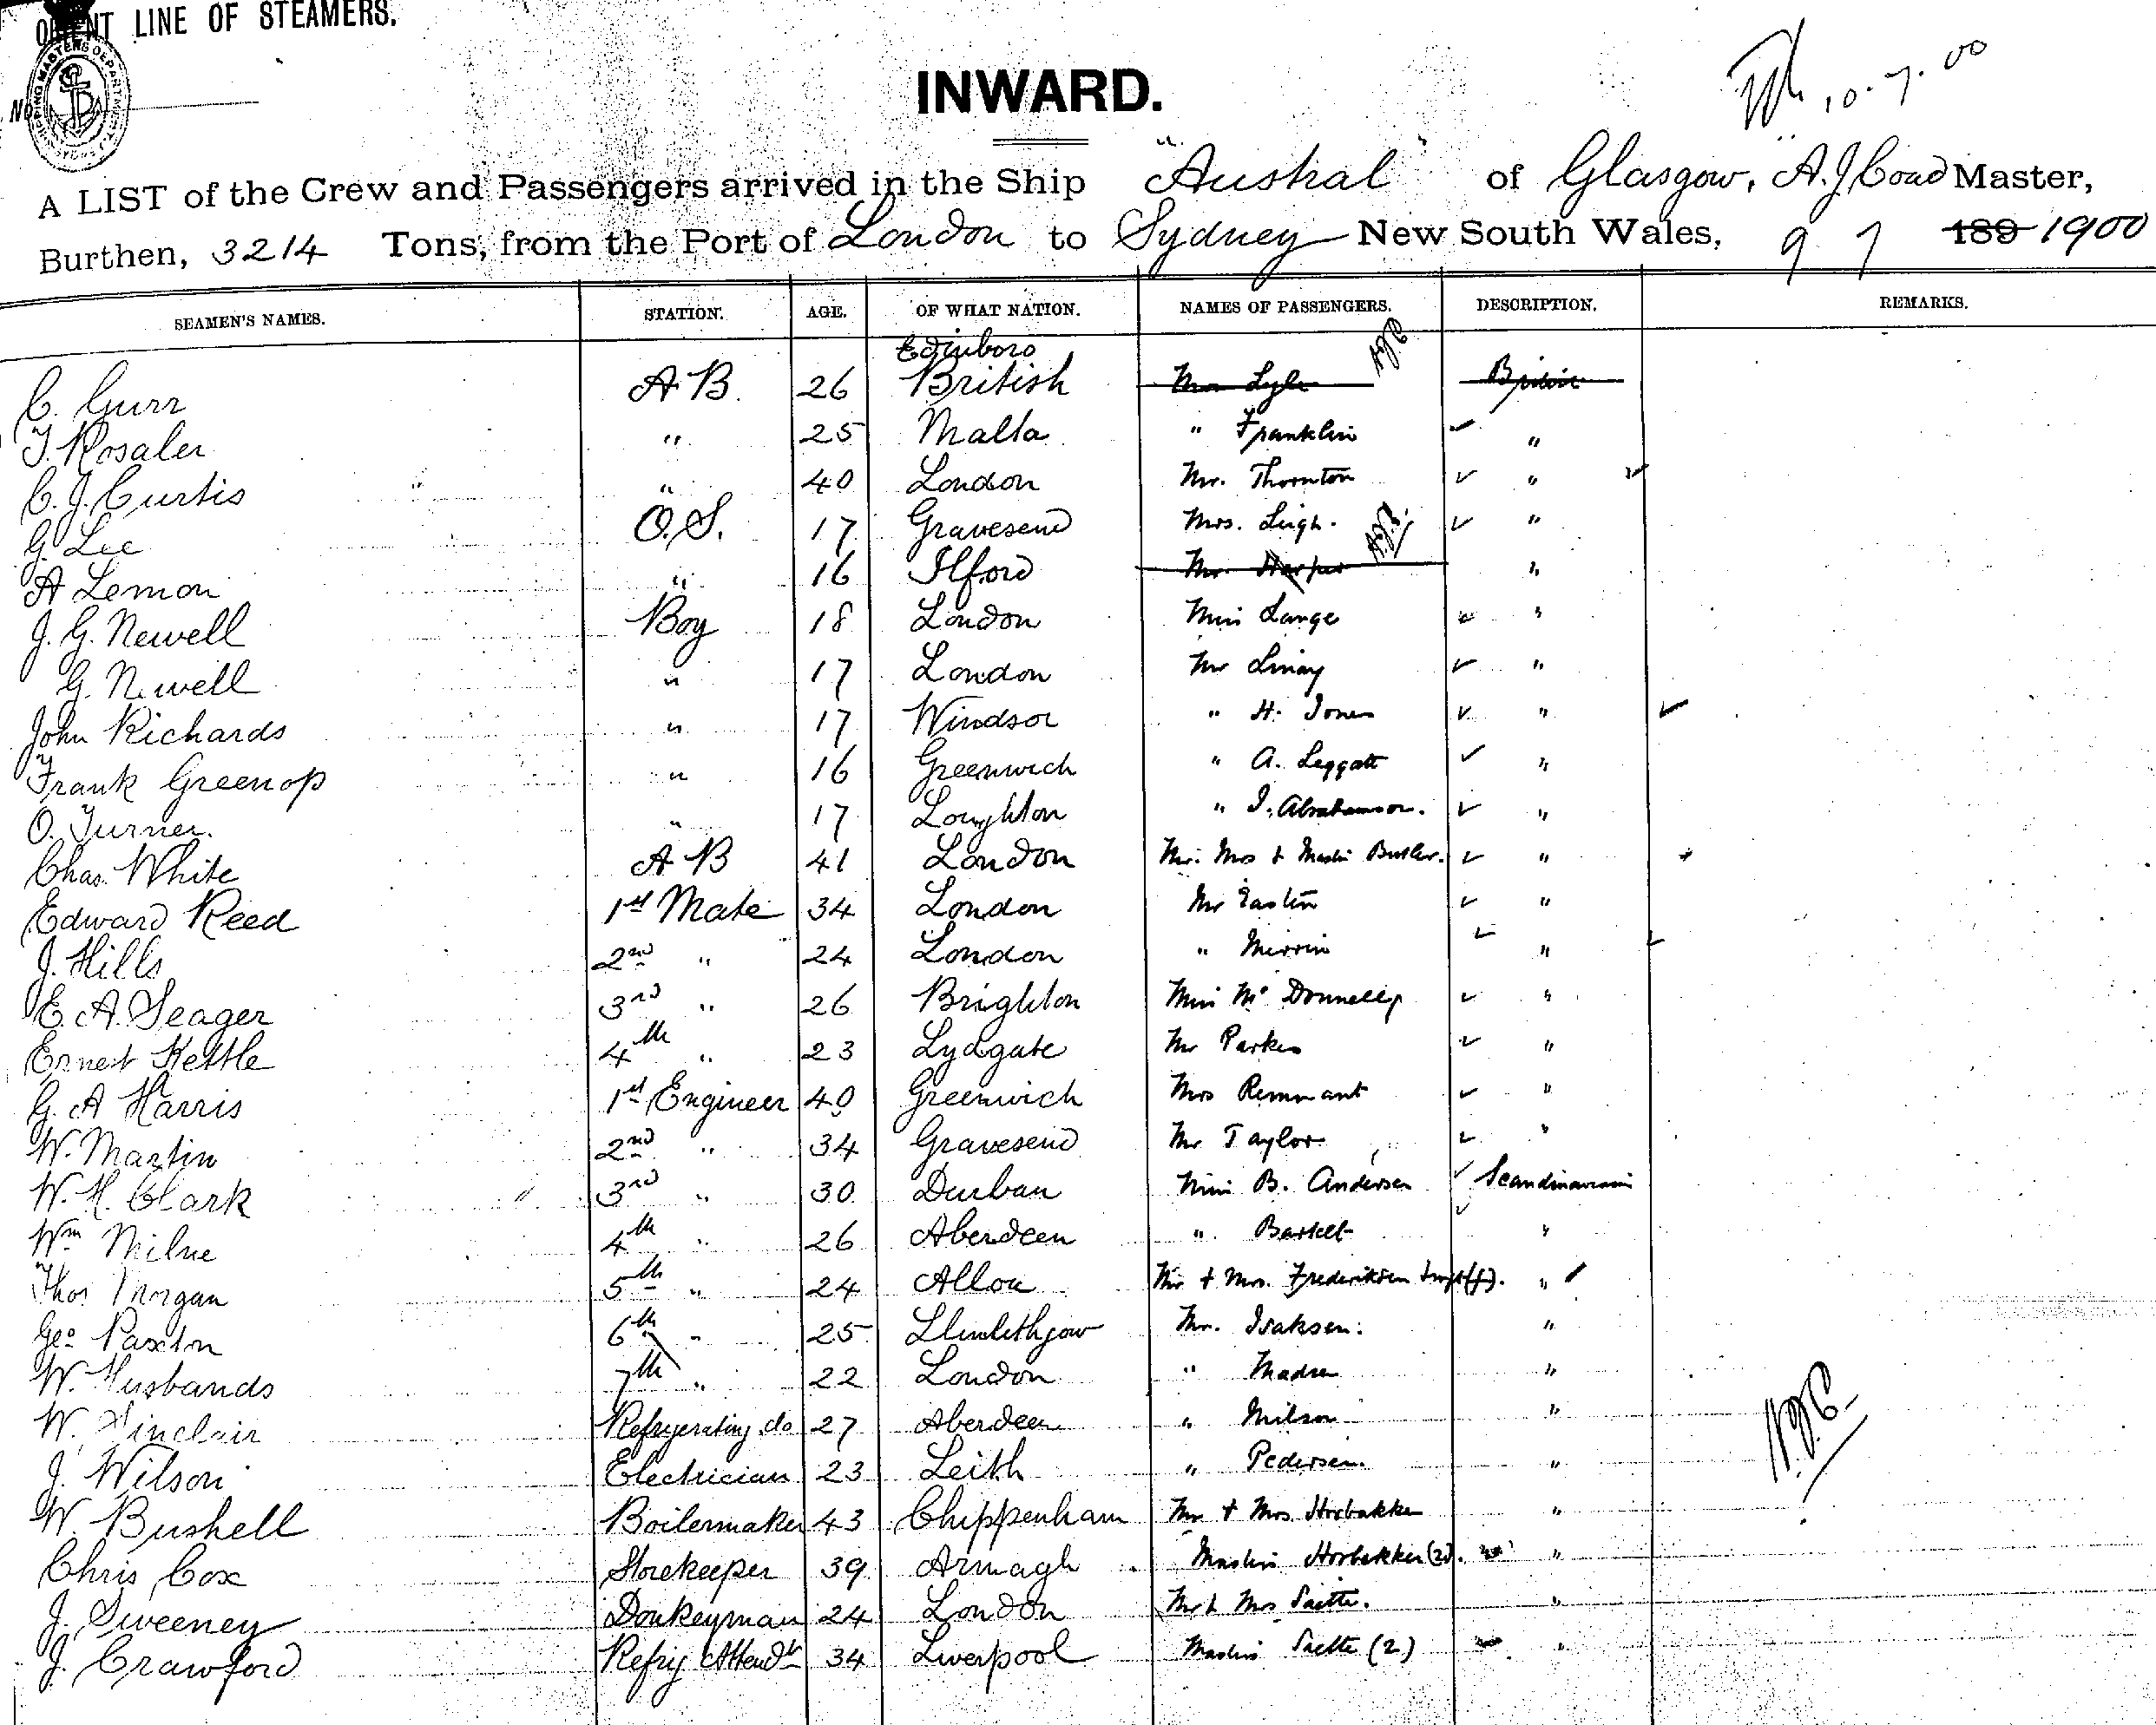 ORIENT LINE OF STEAMERS.
SHIPPING MASTERS DEPARTMENT
No.
INWARD.
10.7.00
A LIST of the Crew and Passengers arrived in the Ship "Austral" of Glasgow, A. J. Coad Master,
Burthen, 3214 Tons, from the Port of London to Sydney New South Wales, 9 7 189 1900
SEAMEN'S NAMES. STATION. AGE. OF WHAT NATION. NAMES OF PASSENGERS. DESCRIPTION. REMARKS.
Edinboro
C. Gurr A.B. 26 British Mrs Lyle British
J. Rosaler " 25 Malta " Franklin "
C. J. Curtis " 40 London Mr. Thornton "
G. Lee O.S. 17 Gravesend Mrs. Leigh. "
A Lemon " 16 Ilford Mr. Harper "
J. G. Newell Boy 18 London Miss Lange "
G. Newell " 17 London Mr "
John Richards " 17 Windsor " H. Jones "
Frank Greenop " 16 Greenwich " A. Leggatt "
O. Turner. " 17 Loughton " I. Abrahamson. "
Chas. White A B 41 London Mr. Mrs & Master Butler. "
Edward Reed 1st Mate 34 London Mr Easton "
J. Hills 2nd " 24 London " "
E. A. Seager 3rd " 26 Brighton Miss Mc Donnell "
Ernest Kettle 4th " 23 Lydgate Mr Parkes "
G. A Harris 1st Engineer 40 Greenwich Mrs Remnant "
W. Martin 2nd " 34 Gravesend Mr Taylor "
W. H. Clark 3rd " 30 Durban Miss B. Andersen Scandinavian
Wm Milne 4th " 26 Aberdeen " "
Thos Morgan 5th " 24 Alloa Mr & Mrs. Frederiksen "
Geo. Paxton 6th " 25 Llinlithgow Mr. Isaksen. "
W. Husbands 7th " 22 London " Madsen "
W. Sinclair Refrigerating do 27 Aberdeen " Nilson "
J. Wilson Electrician 23 Leith " Pedersen. "
W. Bushell Boilermaker 43 Chippenham Mr & Mrs Horbakker "
Chris Cox Storekeeper 39 Armagh Masters Horbakker (2). "
J. Sweeney Donkeyman 24 London Mr & Mrs Saette. "
J. Crawford Refrig Attendt 34 Liverpool Masters Saette (2) "